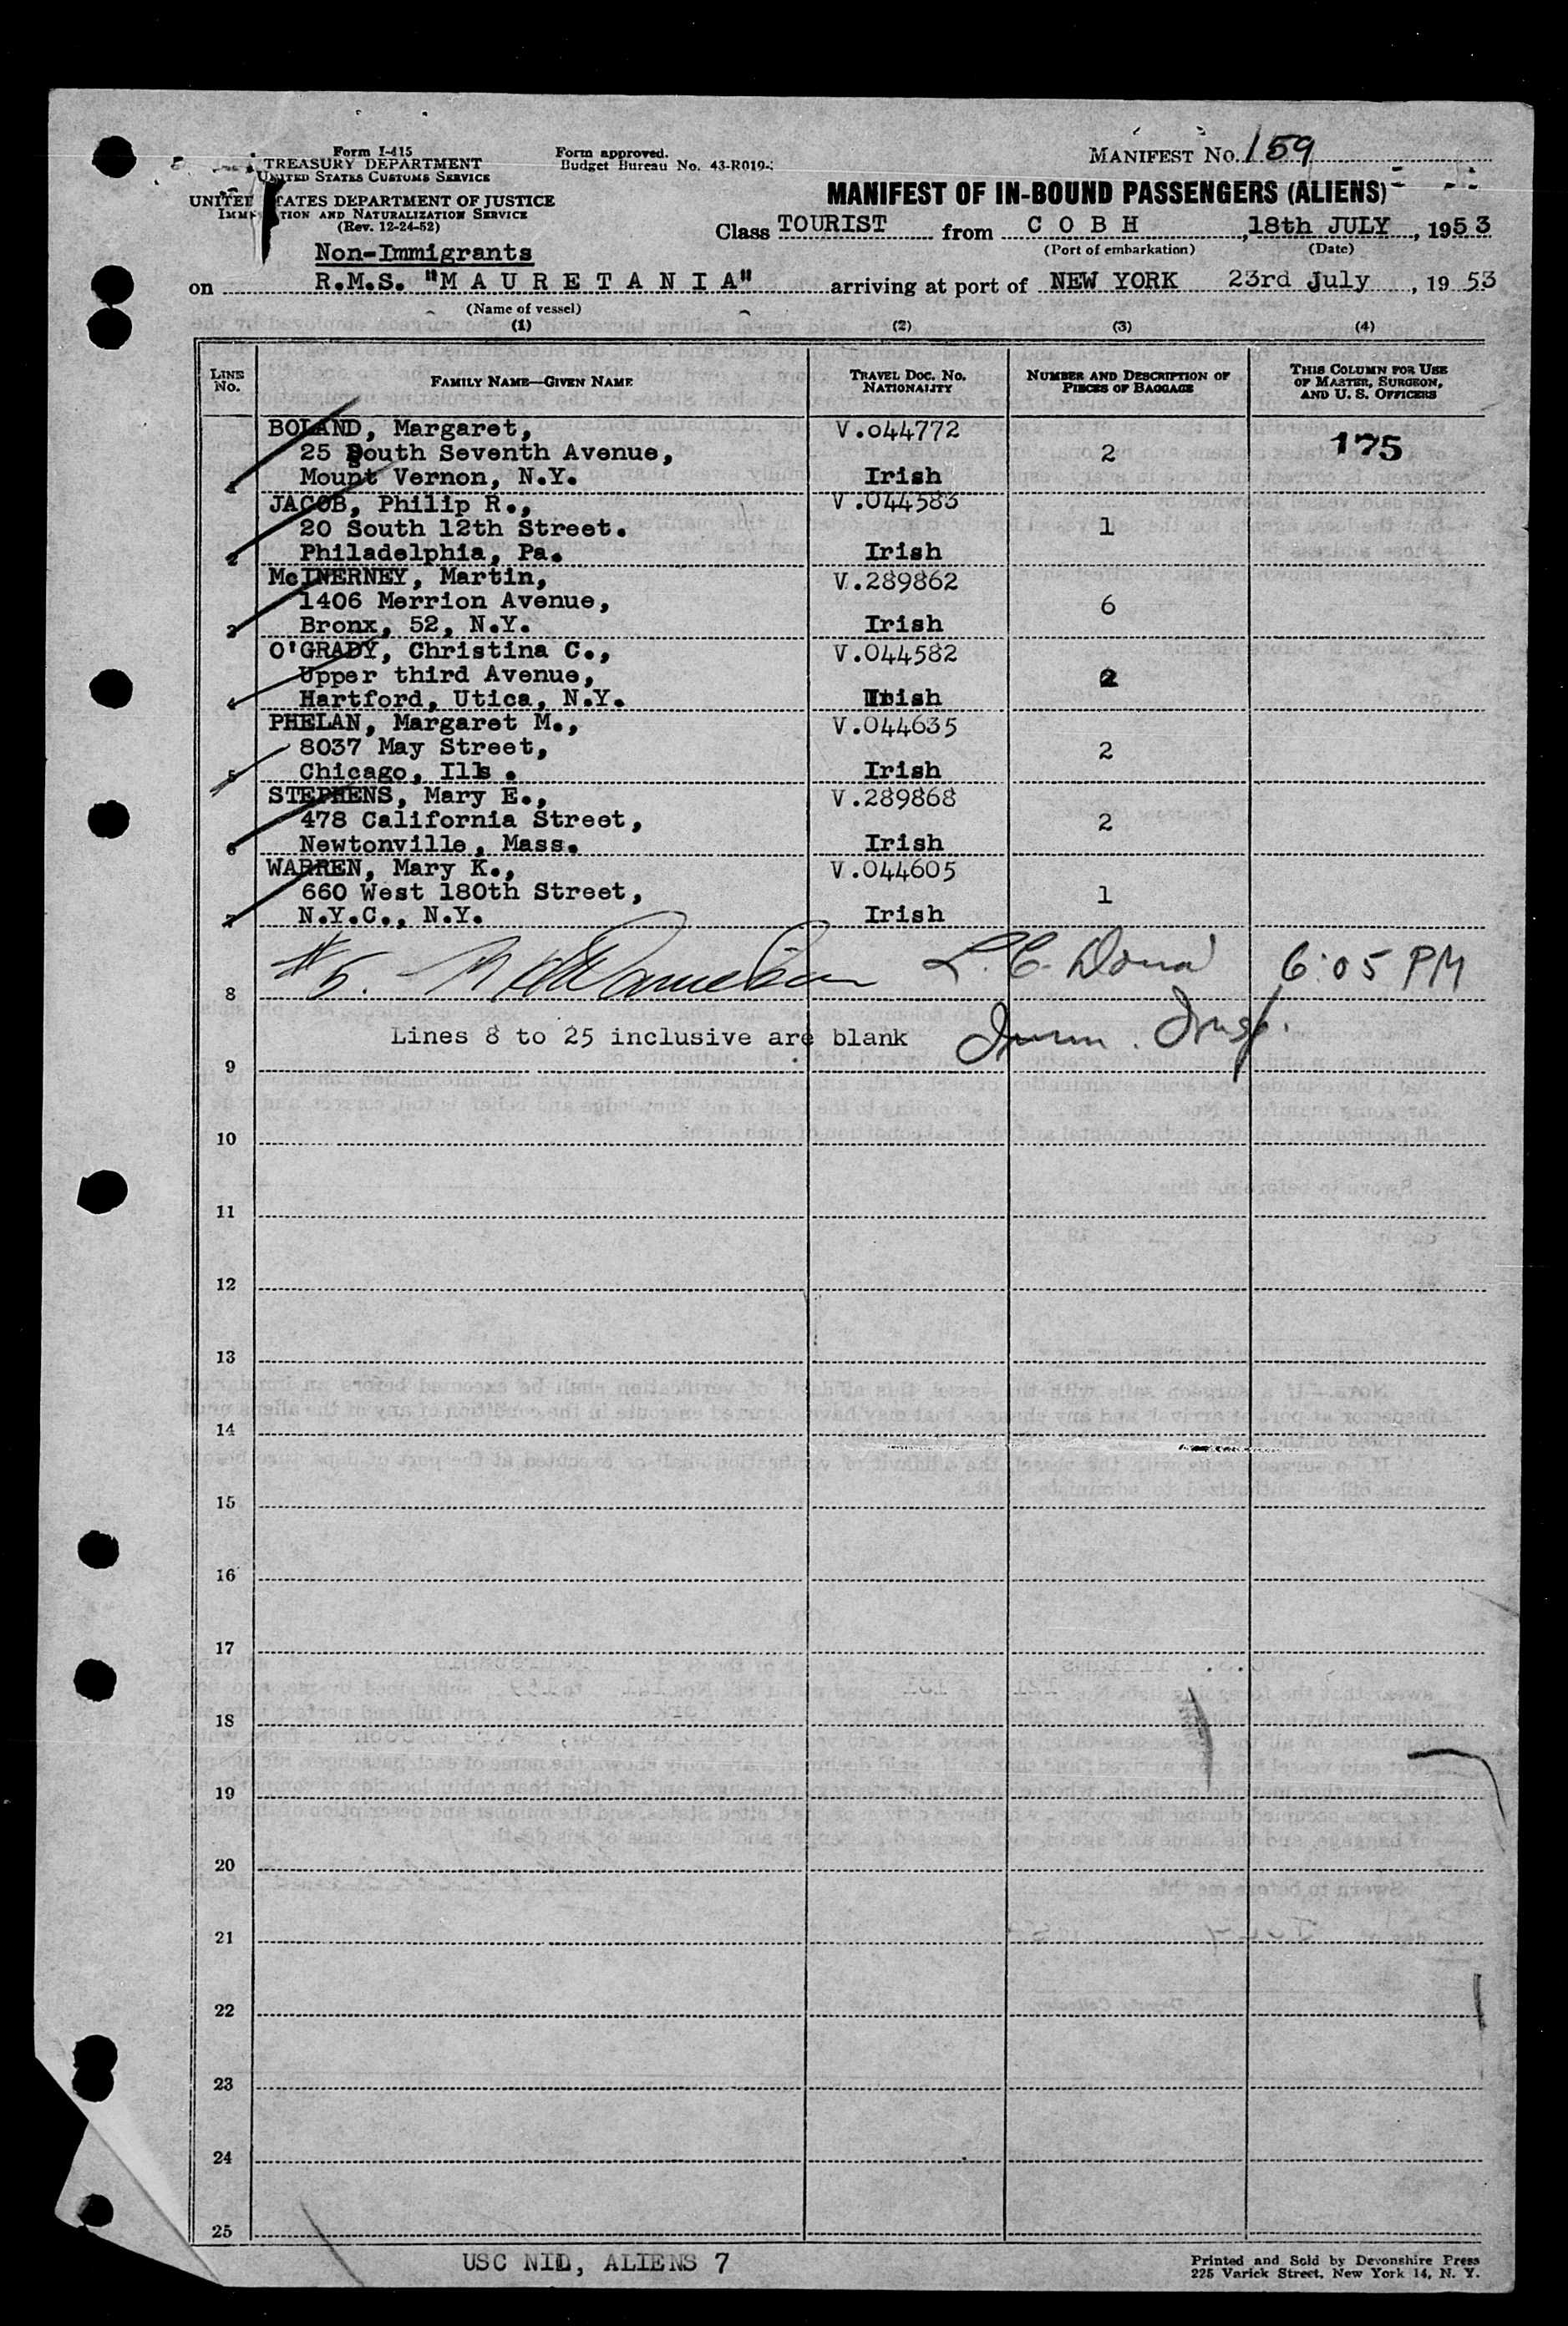 Form I-415
TREASURY DEPARTMENT
UNITED STATES CUSTOMS SERVICE
UNITED STATES DEPARTMENT OF JUSTICE
IMMIGRATION AND NATURALIZATION SERVICE
(Rev. 12-24-52)
Form approved.
Budget Bureau No. 43-R019-
MANIFEST No. 159
MANIFEST OF IN-BOUND PASSENGERS (ALIENS)
Class TOURIST from C O B H, 18th JULY, 1953
(Port of embarkation) (Date)
Non-Immigrants
on R.M.S. "M A U R E T A N I A" arriving at port of NEW YORK 23rd July, 19 53
(Name of vessel)
(1) (2) (3) (4)
LINE No. FAMILY NAME—GIVEN NAME TRAVEL DOC. NO. NATIONALITY NUMBER AND DESCRIPTION OF PIECES OF BAGGAGE THIS COLUMN FOR USE OF MASTER, SURGEON, AND U. S. OFFICERS
BOLAND, Margaret, V.044772
25 South Seventh Avenue, 2 175
1 Mount Vernon, N.Y. Irish
JACOB, Philip R., V.044583
20 South 12th Street. 1
2 Philadelphia, Pa. Irish
McINERNEY, Martin, V.289862
1406 Merrion Avenue, 6
3 Bronx, 52, N.Y. Irish
O'GRADY, Christina C., V.044582
Upper third Avenue, 2
4 Hartford, Utica, N.Y. Irish
PHELAN, Margaret M., V.044635
8037 May Street, 2
5 Chicago, Ills.  Irish
STEPHENS, Mary E., V.289868
478 California Street, 2
6 Newtonville, Mass. Irish
WARREN, Mary K., V.044605
660 West 180th Street, 1
7 N.Y.C., N.Y. Irish
#5. L. C. 6:05 PM
8
Lines 8 to 25 inclusive are blank Imm. Insp.
9
10
11
12
13
14
15
16
17
18
19
20
21
22
23
24
25
USC NIL, ALIENS 7
Printed and Sold by Devonshire Press
225 Varick Street, New York 14, N. Y.